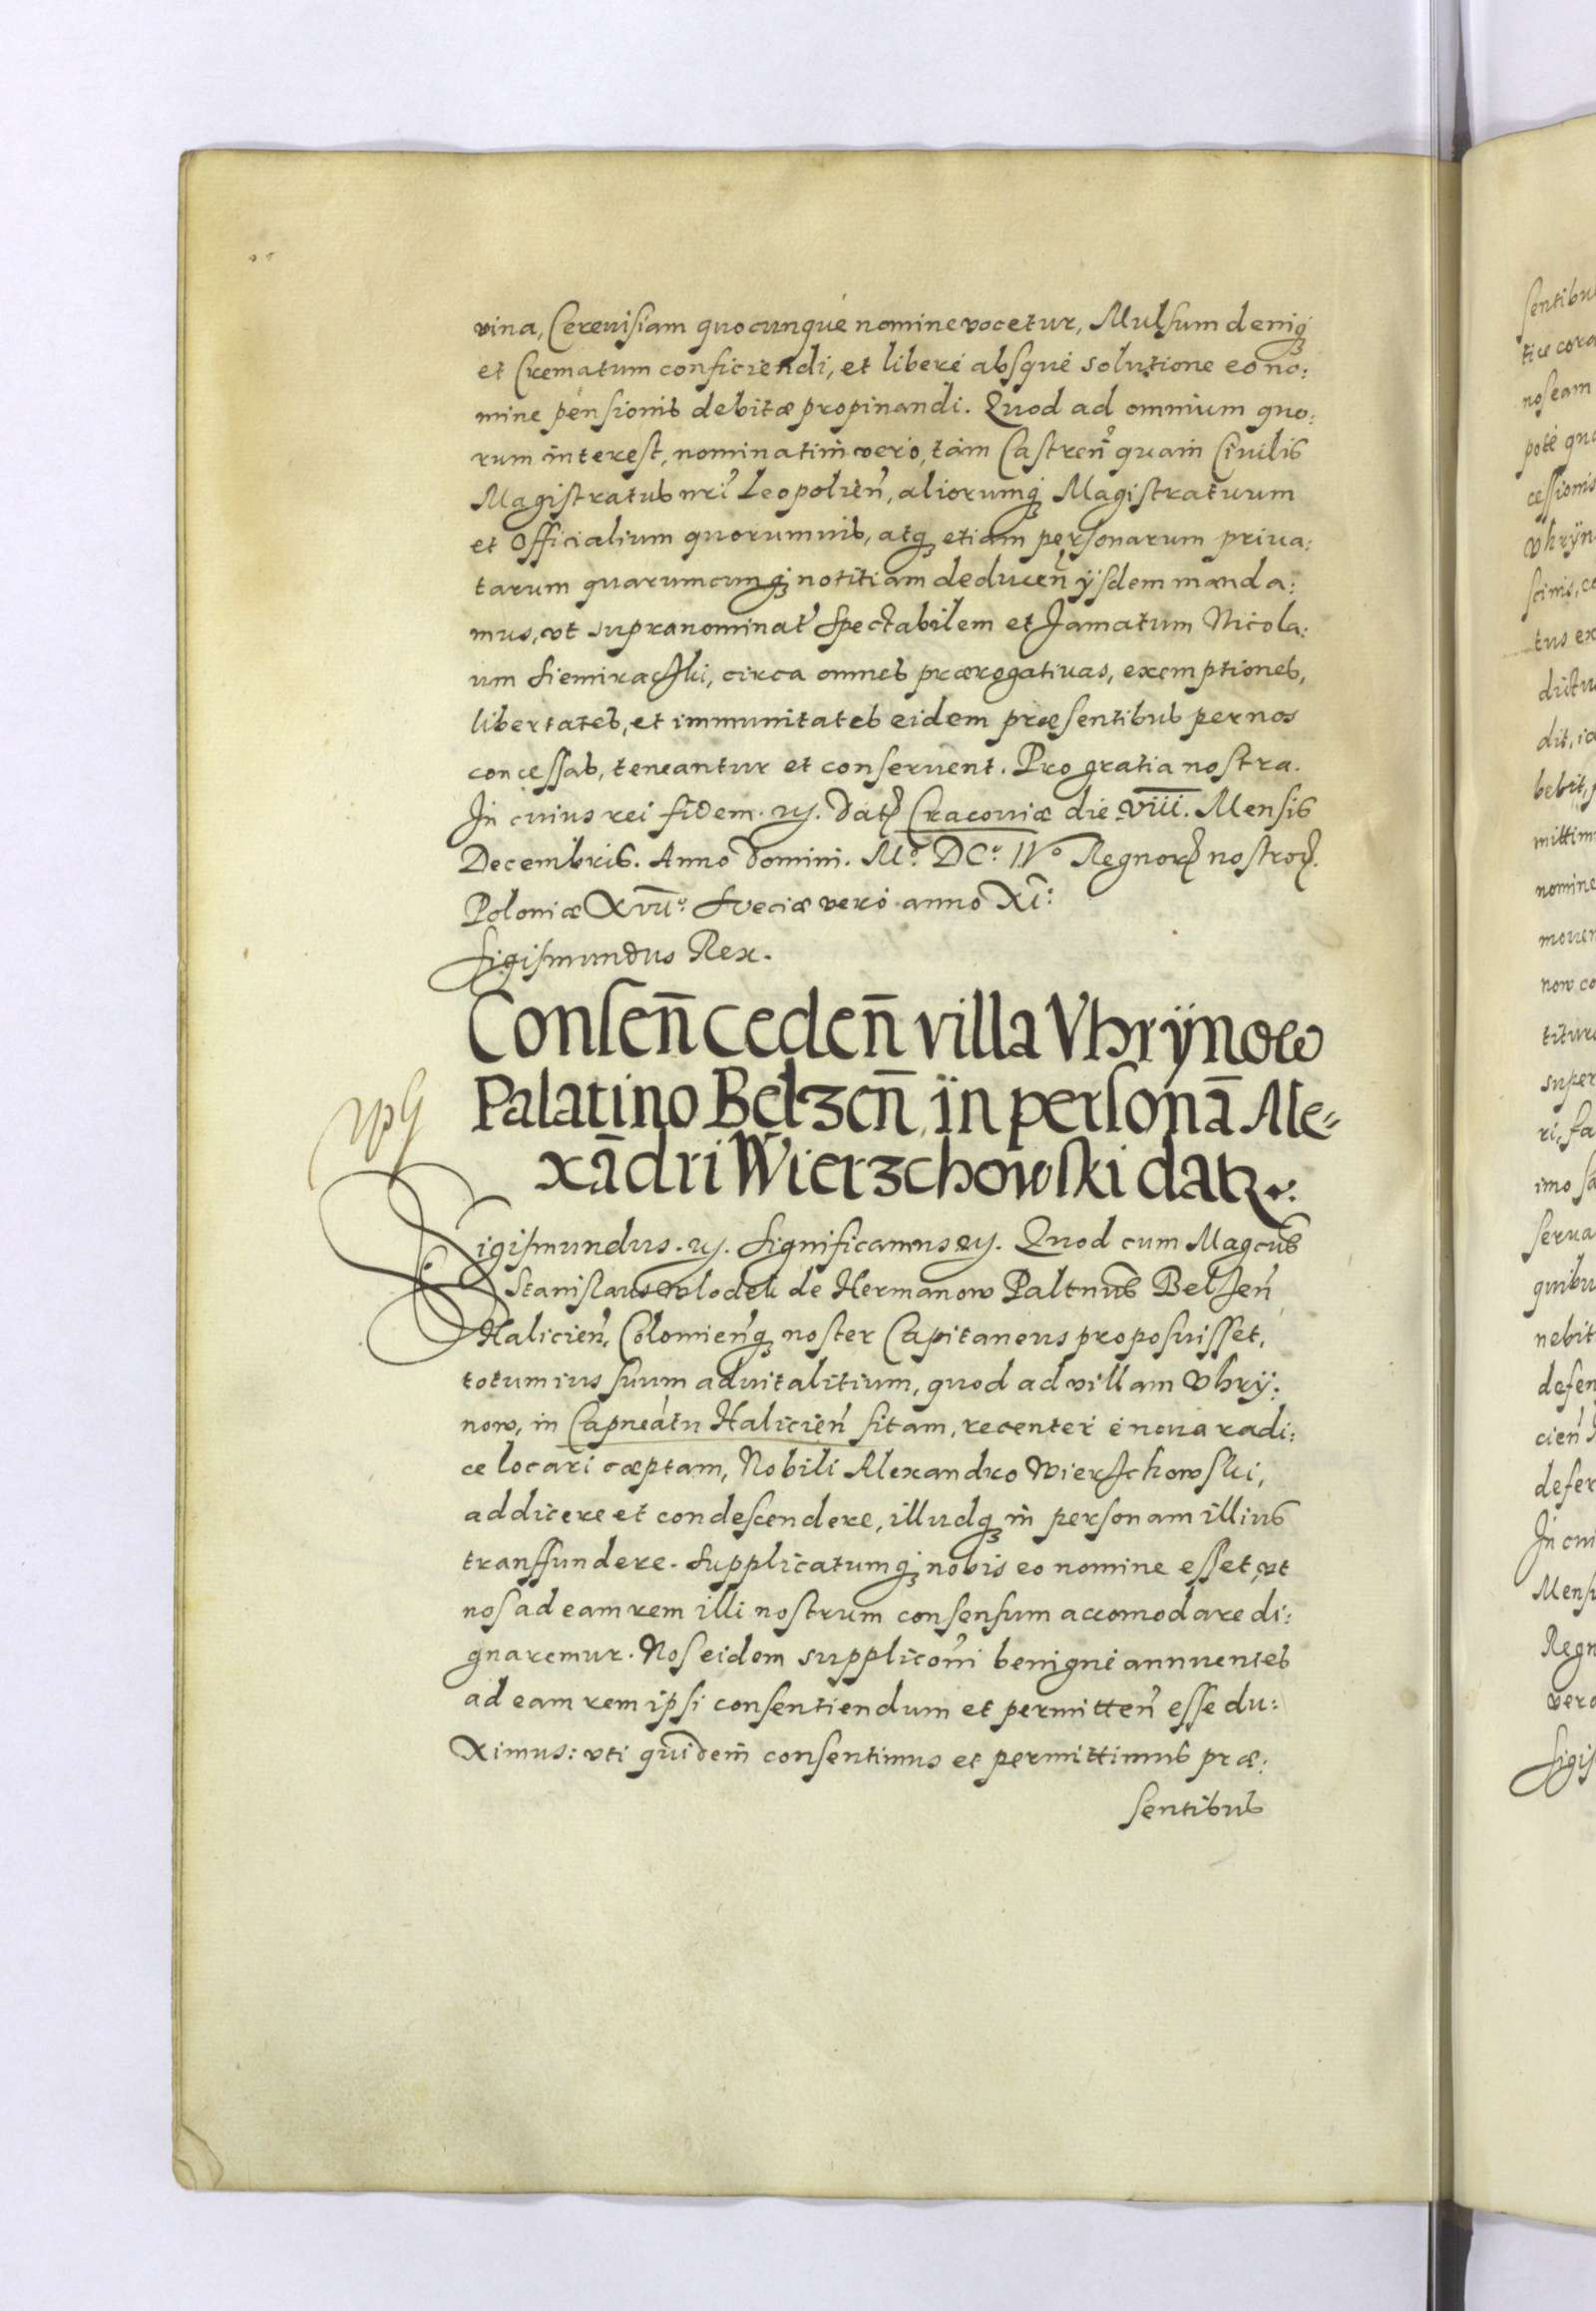 vina, Cereuisiam quocunqué nomine vocetur, Mulsum deniq;
et Crematum conficiendi, et liberé absqué solutione eo no:
mine pensionis debitæ propinandi. Quod ad omnium quo:
rum interest, nominatim vero, tám Castren̄ quam Ciuilis
Magistratus nrĩ Leopolien̄, aliorumq; Magistratuum
et Officialium quorumuis, atq; etiam personarum priua:
tarum quarumcunq; notitiam deducen̄ ÿsdem manda:
mus, vt supranominat̃ Spectabilem et Famatum Nicola:
um Siemiraczki, circa omnes prærogatiuas, exemptiones,
libertates, et immunitates eidem præsentibus per nos
concessas, teneantur et conseruent. Pro gratia nostra.
In cuius rei fidem. ꝛc. Datꝭ Cracouiæ die VIII. Mensis
Decembris. Anno Domini. Mº. DCº. IVº Regnorꝝ nostroꝝ.
Poloniæ XVIIº. Sueciæ veró anno XI:
Sigismundus Rex.
Consen̄ ceden̄ villa Vhrÿnow
Palatino Belzen̄, in personā Ale=
xādri Wierzchowski datꝝ.
Sigismundus. ꝛc. Significamus ꝛc. Quod cum Magcus
Stanislaus Wlodek de Hermanow Paltnus Belzen̄
Halicien̄, Colomien̄q; noster Capitaneus proposuisset,
totum ius suum aduitalitium, quod ad villam Vhrÿ:
now, in Capneatu Halicien̄ sitam, recenter é noua radi:
ce locari cæptam, Nobili Alexandro Wierzchowski,
addicere et condescendere, illudq; in personam illius
transfundere. Supplicatumq; nobis eo nomine esset, vt
nos ad eam rem illi nostrum consensum accomodare di:
gnaremur. Nos eidem supplicõni benigné annuentes
ad eam rem ipsi consentiendum et permitten̄ esse du:
ximus: vti quidem consentimus et permittimus præ:
sentibus